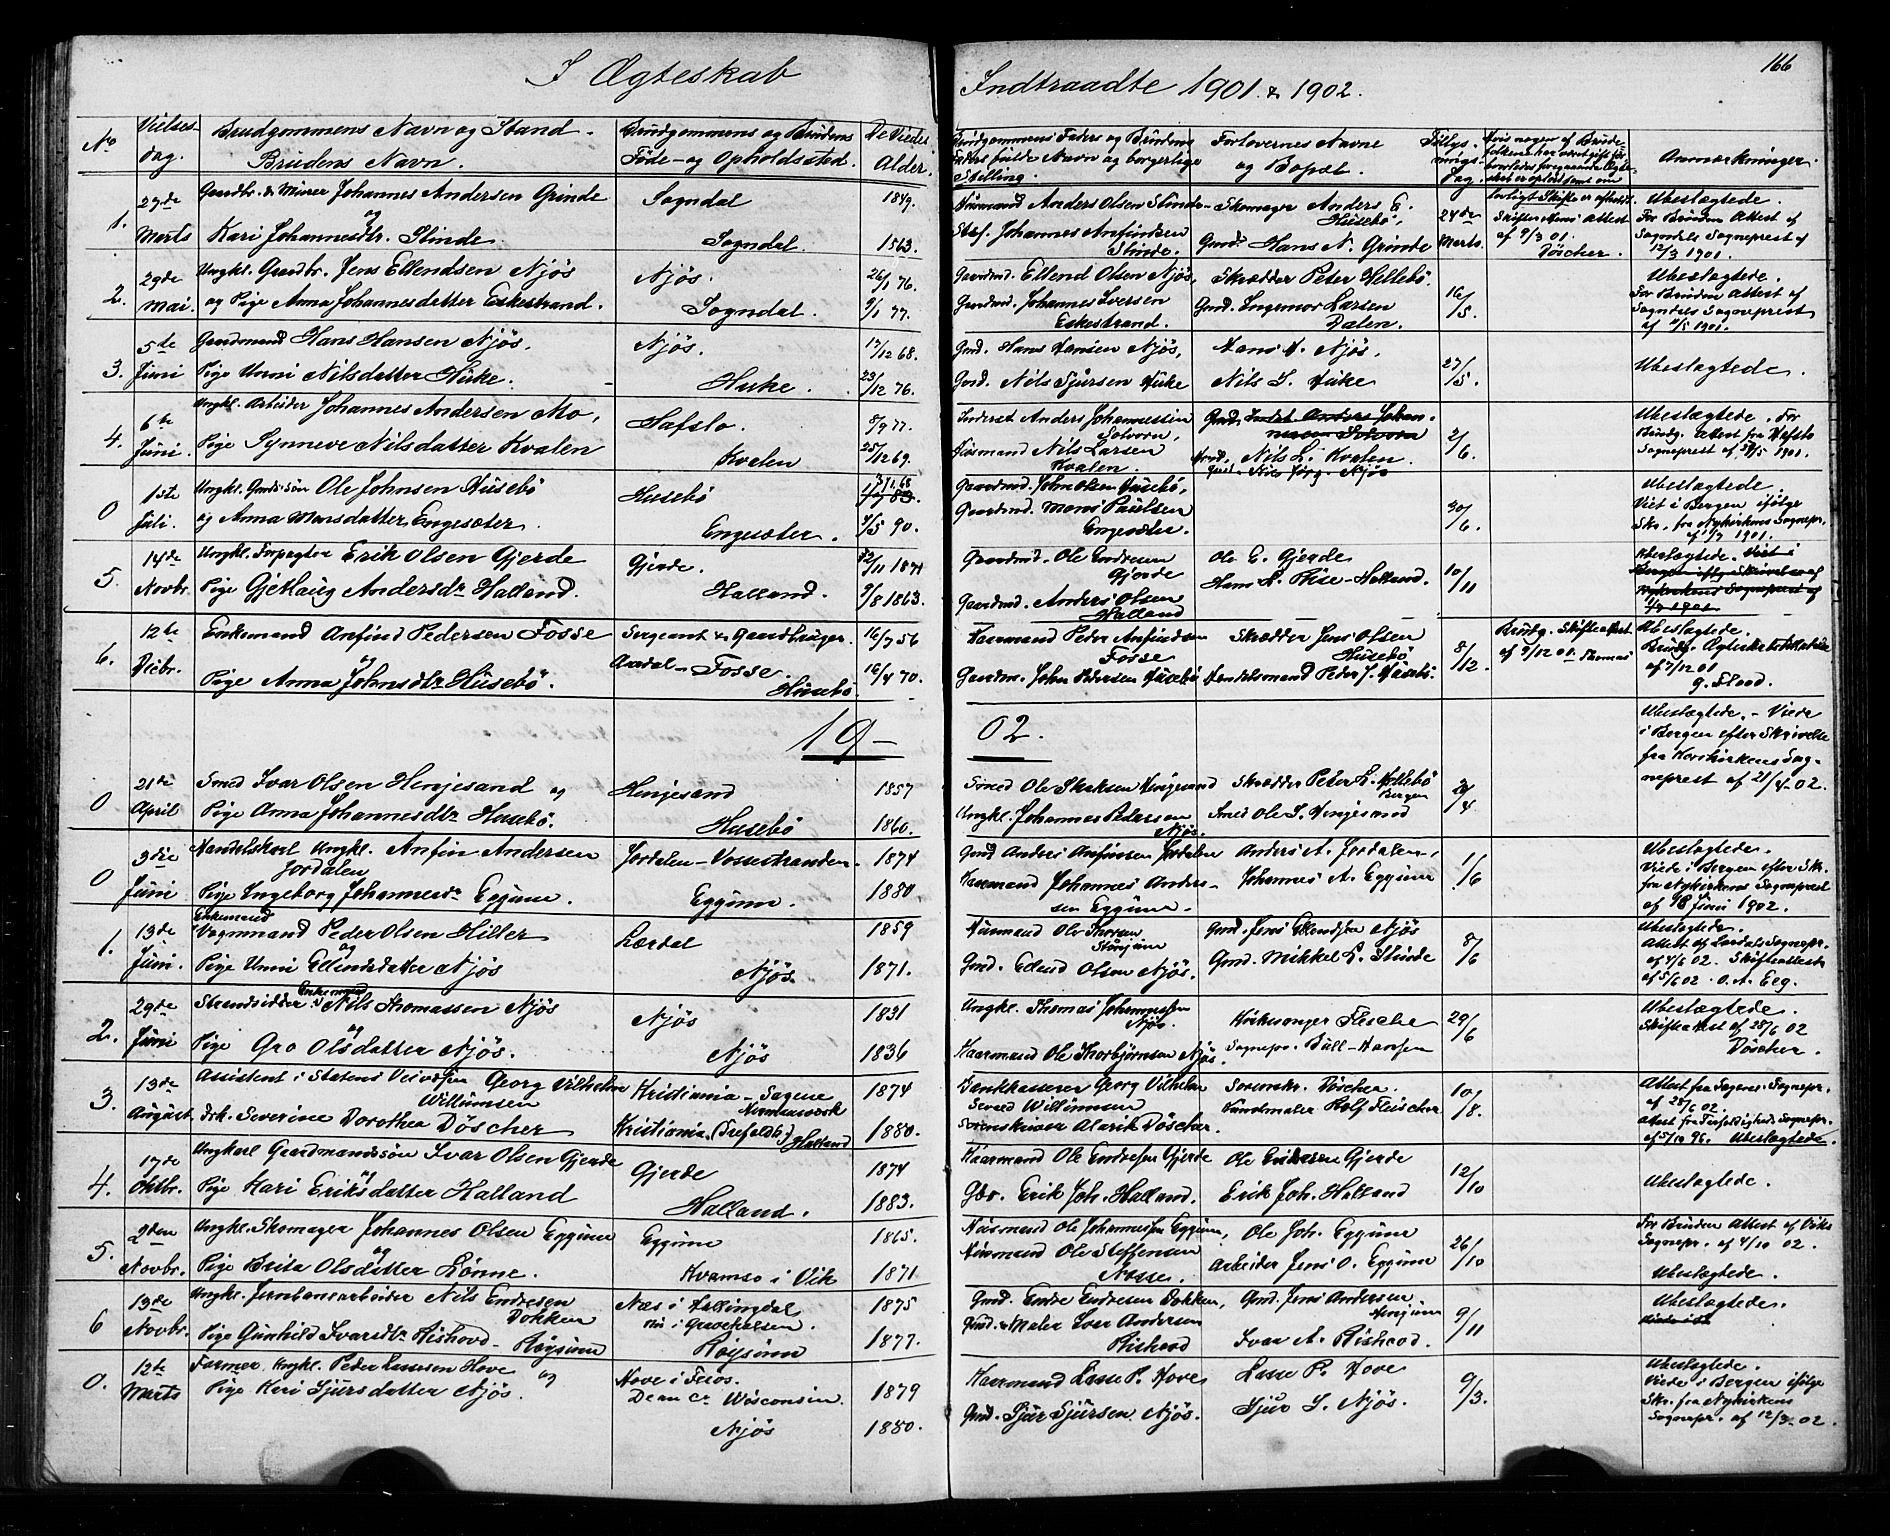 166
I Ægteskab Indtraadte 1901 & 1902.
No
Vielses-
dag.
Brudgommens Navn og Stand.
Brudens Navn.
Brudgommens og Brudens
Føde- og Opholdssted.
De Viedes
Alder.
Brudgommens Faders og Brudens
Faders fulde Navn og borgerlige
Stilling.
Forlovernes Navne
og Bopæl.
Anmærkninger.
1.
29de
Marts
Gaardbr. & Murer Johannes Andersen Grinde
og
Kari Johannesdtr. Stinde
Sogndal
Sogndal.
1849.
1863.
Husmand Anders Olsen Slinde
Johannes Anfindsen
Slinde.
Skomager Anders E.
Husebö,
Gmd. Hans N. Grinde
24de
Marts.
Skifterettens Attest
af 9/3 01.
Döscher.
Ubeslægtede.
For Bruden Attest af
Sogndals Sogneprest af
12/3 1901.
2.
29de
Mai.
Ungkl. Gaardbr. Jens Ellendsen Njös
og Pige Anna Johannesdatter Eskestrand.
Njös.
Sogndal.
26/1 76.
9/1 77.
Gaardmd. Ellend Olsen Njös,
Gaardmd. Johannes Iversen
Eskestrand.
Skrædder Peter Hillebö.
Gmd. Ingemor Larsen
Dalen.
16/5.
Ubeslægtede.
For Bruden Attest af
Sogndals Sogneprest
af 11/5 1901.
3.
5te
Juni
Gaardmand Hans Hansen Njös.
Pige Unni Nilsdatter Huke.
Njös.
Huke.
17/12 68.
23/12 76.
Gmd. Hans Hansen Njös,
Gmd. Nils Sjursen Huke
Hans H. Njös,
Nils S. Huke
27/5.
Ubeslægtede.
4.
6te
Juni.
Ungkl. Arbeider Johannes Andersen Mo,
Pige Synneve Nilsdatter Kvalen
Hafslo.
Kvalen
8/9 77.
25/12 69.
Inderst Anders Johannessen
Solvorn,
Husmand Nils Larsen
Kvalen.
Gmd. Inderst Anders Johan-
nessen Solvorn
Nils L. Kvalen.
Gmd. Nils Jörg. Njös
2/6.
Ubeslægtede. For
Brudg. Attest fra Hafslo
Sogneprest af 28/5 1901.
0
1ste
Juli.
Ungkl. Gmds.sön Ole Johnsen Husebö
og Anna Monsdatter Engesæter.
Husebö
Engesæter.
9/5 90.
Gaardmd. John Olsen Husebö,
Gaardmd. Mons Paulsen
Engesæter.
30/6.
Ubeslægtede.
Viet i Bergen ifölge
Skr. fra Nykirkens Sognepr.
af 1/7 1901.
5.
14de
Novbr.
Ungkl. Forpagter Erik Olsen Gjerde
Pige Gjetlaug Andersdtr Halland.
Gjerde.
Halland.
22/11 1871
9/8 1863.
Gaardmd. Ole Endresen
Gjerde
Gaardmd. Anders Olsen
Halland
Ole E. Gjerde
Hans H. Hise-Halland.
10/11
Ubeslægtede. Viet i
Bergen ifölge Skrivelse af
Nykirkens Sogneprest af
1/7 1901
6.
12te
Decbr.
Enkemand Anfind Pedersen Fosse
og
Pige Anna Johnsdtr Husebö.
Sergeant & Gaardbruger.
Aardal-Fosse.
Husebö
16/7 56
16/4 70.
Kaarmand Peder Anfindsen
Fosse
Gaardm. John Pedersen Husebö
Skrædder Jens Olsen
Husebö
Handelsmand Peder J. Husebö.
8/12.
Brudg. Skifteattest
af 9/12 01. Thomas
Ubeslægtede.
af 7/12 01
G. Flood.
19-02.
0
21de
April
Smed Ivar Olsen Henjesand og
Pige Anna Johannesdtr Husebö.
Henjesand
Husebö
1857
1860.
Smed Ole Henjesand
Ungkl. Johannes Pedersen
Njös.
Skrædder Peter L. Hillebö
Bergen
Smed Ole S. Henjesand
Ubeslægtede. - Viede
i Bergen efter Skrivelse
fra Korskirkens Sog-
neprest af 21/4-02.
0
3die
Juni
Handelskarl Ungkl. Anfin Andersen
Jordalen
Pige Ingeborg Johannesdr Eggum.
Jordalen-Vossestranden
Eggum.
1874
1880
Gmd Anders Anfinsen Jordalen
Kaarmand Johannes Anders-
sen Eggum.
Anders A. Jordalen,
Johannes A. Eggum
1/6
Ubeslægtede.
Viede i Bergen efter Sk.
fra Nykirkens Sogneprest
af 18 Juni 1902.
1.
13de
Juni.
Enkemand
Vognmand Peder Olsen Hiller
og
Pige Unni Ellendsdatter Njös
Lærdal
Njös.
1859
1871.
Husmand Ole Thorsen
Gmd. Ellend Olsen Njös.
Gmd. Jens Ellendsen Njös
Gmd. Mikkel L. Slinde
8/6
Ubeslægtede.
Attest af Lærdals Sognepr.
af 4/6 02. Skifteattest
af 5/6 02. O. A. Eeg.
2.
29de
Juni
Strandsidder Enkemand Nils Thomassen Njös
og
Pige Gro Olsdatter Njös.
Njös
Njös
1831
1836
Ungkl. Thomas Johannessen
Njös.
Kaarmand Ole Thorbjörnsen Njös.
Kirkesanger Flesche
Sognepr. Bull-Hansen
29/6
Ubeslægtede.
Skifteattest af 28/6 02
Döscher.
3.
13de
August
Assistent i Statens Veivæsen Georg Vilhelm
Willumsen
Frk. Severine Dorothea Döscher
Kristiania-Sagene
Kristiania (Trefoldh.) Halland
1874
1880.
Bankkasserer Georg Vilhelm
Willumsen
Sorenskriver Alarik Döscher.
Sorenskr. Döscher.
Landmaaler Rolf Fleischer
10/8.
Attest fra Sagenes Sognepr.
af 28/6 02.
Attest fra Trefoldigheds Sognepr.
af 5/10 96. Ubeslægtede.
4.
17de
Oktbr.
Ungkarl Gaardmandssön Ivar Olsen Gjerde
og
Pige Kari Eriksdatter Halland
Gjerde
Halland.
1874
1883.
Kaarmand Ole Endresen Gjerde
Gbr. Erik Joh. Halland.
Ole Endresen Gjerde
Erik Joh. Halland
12/10
Ubeslægtede.
5.
2den
Novbr.
Ungkl. Skomager Johannes Olsen Eggum
og
Pige Brita Olsdatter Lönne.
Eggum
Kvamsö i Vik
1865.
1871
Husmand Ole Johannessen Eggum,
Husmand Ole Steffensen
Nosse.
Ole Joh. Eggum
Arbeider Jens O. Eggum
26/10
For Bruden Attest af Viks
Sognepr. af 4/10 02.
Ubeslægtede.
6
13de
Novbr.
Ungkl. Jernbanearbeider Nils Endresen
Dokken
Pige Gunhild Ivarsdtr Rishovd-Röysum
Næs i Hallingdal
nu i Gravehalsen.
Röysum
1875
1877.
Gmd. Endre Endresen Dokken,
Gmd. & Maler Iver Andersen
Rishovd
Gmd. Jens Andersen
Henjum
Ivar A. Rishovd.
9/11
Ubeslægtede.
0.
12te
Marts
Farmer, Ungkl. Peder Lassesen Hove og
Pige Kari Sjursdatter Njös.
Hove i Feios.
Dean Co. Wisconsin.
Njös
1879
1880.
Kaarmand Lasse P. Hove
Gmd. Sjur Sjursen Njös.
Lasse P. Hove
Sjur S. Njös.
9/3.
Ubeslægtede.
Viede i Bergen ifölge
Skr. fra Nykirkens
Sognepr. af 12/3-02.